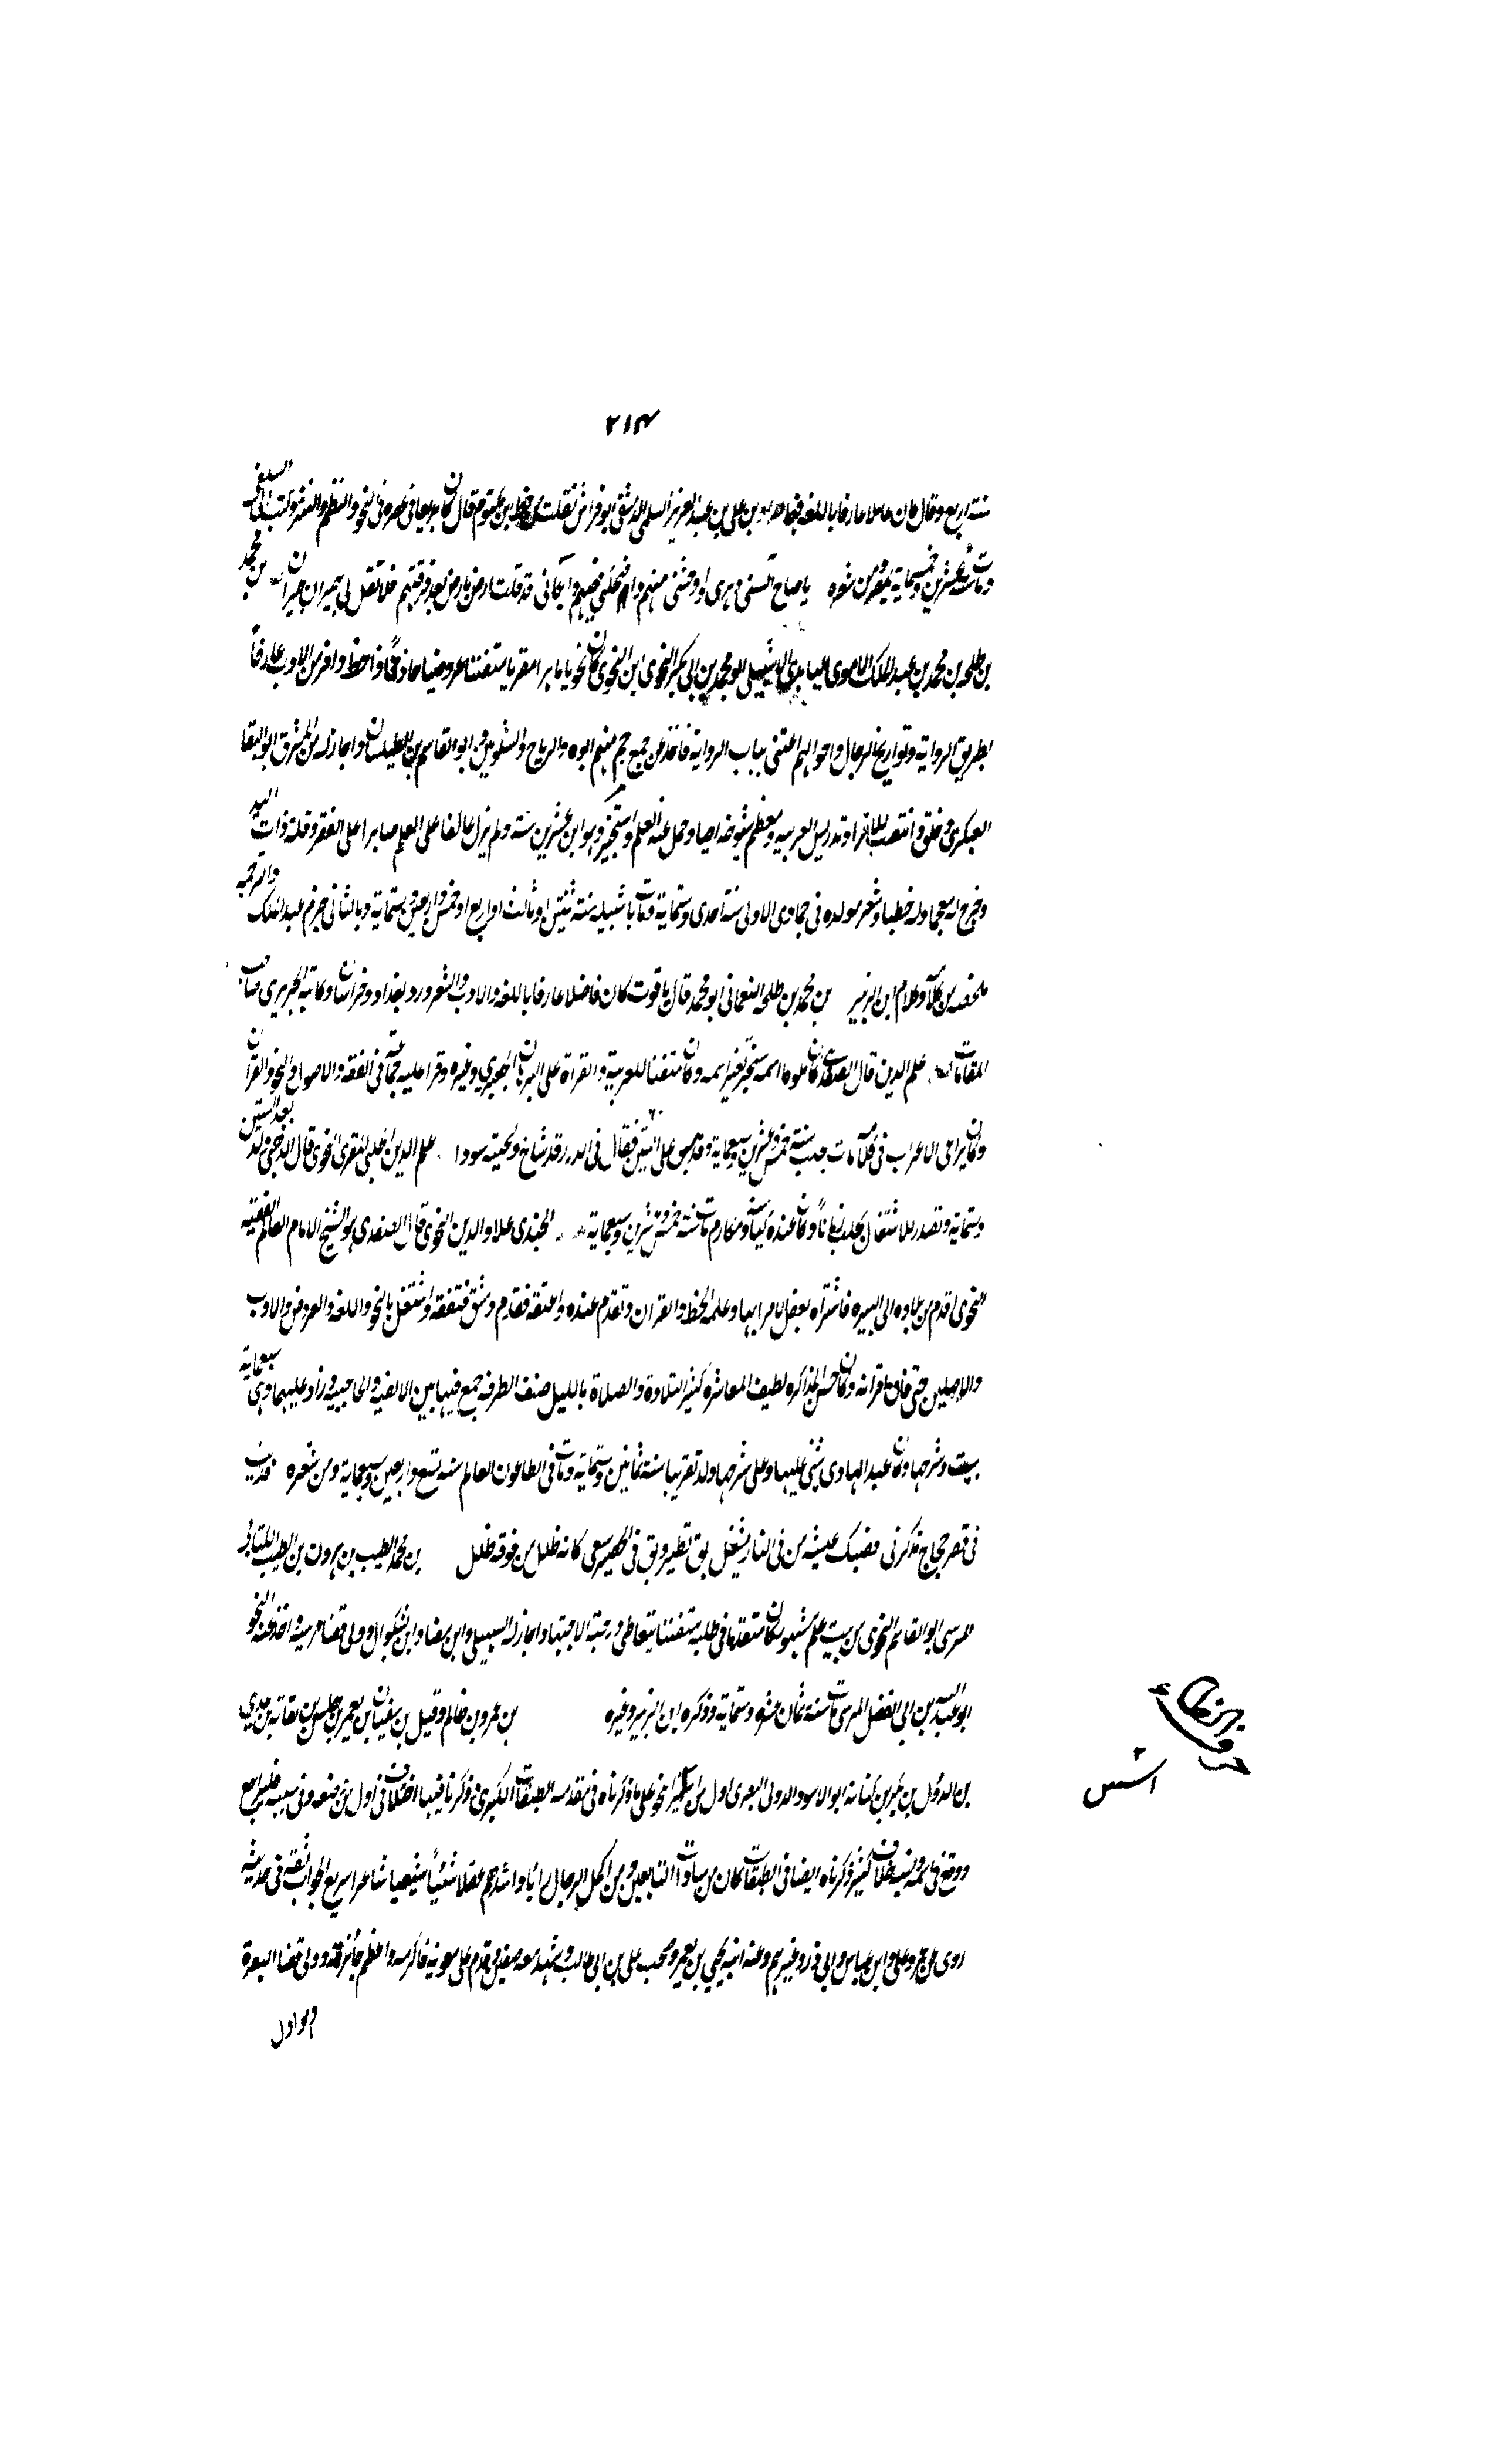 ٢١٣
سنة اربع وقال كان عاملا عارفا باللغة فيما بن علي بن عبد العزيز السلمي الدمشقي ابو فراس نقلت من خط ابن مكتوم قال كان بديعا في عصره في النحو والنظم والنثر وكتب الى السلفي
ومات سنة عشرين وخمسماية بمصر ومن شعره يا صاح آنسني دهري واوحشني منهم واضحكني فيهم وابكاني قد قلت ارض بارض بعد فرقتهم فلا تقل لي جيران بجيران بن محمد
بن طلحة بن محمد بن عبد الملك الاموي اليابري الاشبيلي ابو محمد بن ابي بكر النحوي ابن النحوي كان نحويا ماهرا مقريا متفننا عروضيا حاذقا ذا حظ وافر من الادب عارفا
بطريق الرواية وتواريخ الرجال واحوالهم اعتنى بباب الرواية فاخذ عن جمع جم منهم ابوه والدباج والشلوبين وابو القاسم بن الطيلسان واجاز له من المشرق ابو البقا
العكبري وخلق وانتصب للاقرا وتدريس العربية ومعظم شيوخه احيا وحمل عنه العلم واستجيز وهو ابن عشرين سنة ولم يزل عاكفا على العلم صابرا على الفقر وقلة ذات اليد
وخرج له معجما وله خطب وشعر مولده في جمادى الاولى سنة احدى وستماية ومات باشبيلية سنة ثنتين او ثالث او اربع او خمس واربعين وستماية وبالثاني جزم عبد الملك والترجمة
ملخصة من كلامه وكلام ابن الزبير بن محمد بن طلحة النعماني ابو محمد قال ياقوت كان فاضلا عارفا باللغة والادب والشعر ورد بغداد وخراسان وكاتبه الحريري صاحب
المقامات علم الدين قال الصفدي كان مملوكا اسمه سنجر فغير اسمه وكان متقنا للعربية والقراة على البرهان الجعبري وغيره وقرا عليه جماعة في الفقه والاصول والنحو والقران
وكان يراعي الاعراب في كلامه مات بحلب سنة خمس وعشرين وسبعماية وقد جلس على الستين فقال في الدرر قد شاخ ولحيته سودا علم الدين الحلبي المقري النحوي قال الذهبي ولد بعد الستين
وستماية وتصدر للاشتغال بحلب زمانا وكان عنده كياسة ومكارم مات سنة خمس وعشرين وسبعماية الجندي علاء الدين النحوي قال الصفدي هو الشيخ الامام العالم الفقيه
النحوي اقدم من بلاده الى البيرة فاشتراه بعض الامرا بها وعلمه الخط والقران وتقدم عنده واعتقه فقدم دمشق فتفقه واشتغل بالنحو واللغة والعروض والادب
والاصلين حتى فاق اقرانه وكان حسن المذاكرة لطيف المعاشرة كثير التلاوة والصلاة بالليل صنف الطرفة جمع فيها بين الالفية والحاجبية وزاد عليهما وهي سبعماية
بيت وشرحها وكان عبد الهادي يثني عليها وعلى شرحها ولد تقريبا سنة ثمانين وستماية ومات في الطاعون العام سنة تسع واربعين وسبعماية ومن شعره قد بت
في قصر حجاج فذكرني بضنك عيشة من في النار يشتعل بق تطير وبق في الحصير سعى كانه ظلل من فوقه ظلل بن محمد الطيب بن هرون بن الطيب الكناني
المرسي ابو القاسم النحوي من بيت علم مشهور كان متقدما في طلبه متفننا يتعاطى درجة الاجتهاد اجاز له السهيلي وابن مضا وابن بشكوال وولي قضا مرسية واخذ عنه النحو
ابو عبد الله بن ابي الفضل المرسي مات سنة ثمان عشرة وستماية وذكره ابن الزبير وغيره بن عمرو بن ظالم وقيل بن سفيان بن يعمر بن حلس بن نفاثة بن عدي
بن الدؤل بن بكر بن كنانة ابو الاسود الدولي البصري اول من اسس النحو على ما ذكرناه في مقدمة الطبقات الكبرى وذكرنا فيها اختلافا في اول من وضعه وفي سببه فليراجع
ووقع في اسمه ونسبه خلاف كثير ذكرناه ايضا في الطبقات كان من سادات التابعين ومن اكمل الرجال رايا واشدهم عقلا شيعيا شاعرا سريع الجواب ثقة في حديثه
روى عن عمر وعلي وابن عباس وابي ذر وغيرهم وعنه ابنه يحيى بن يعمر وصحب علي بن ابي طالب وشهد معه صفين وقدم على معوية فاكرمه واعظم جائزته وولي قضا البصرة
وهو اول
اسس